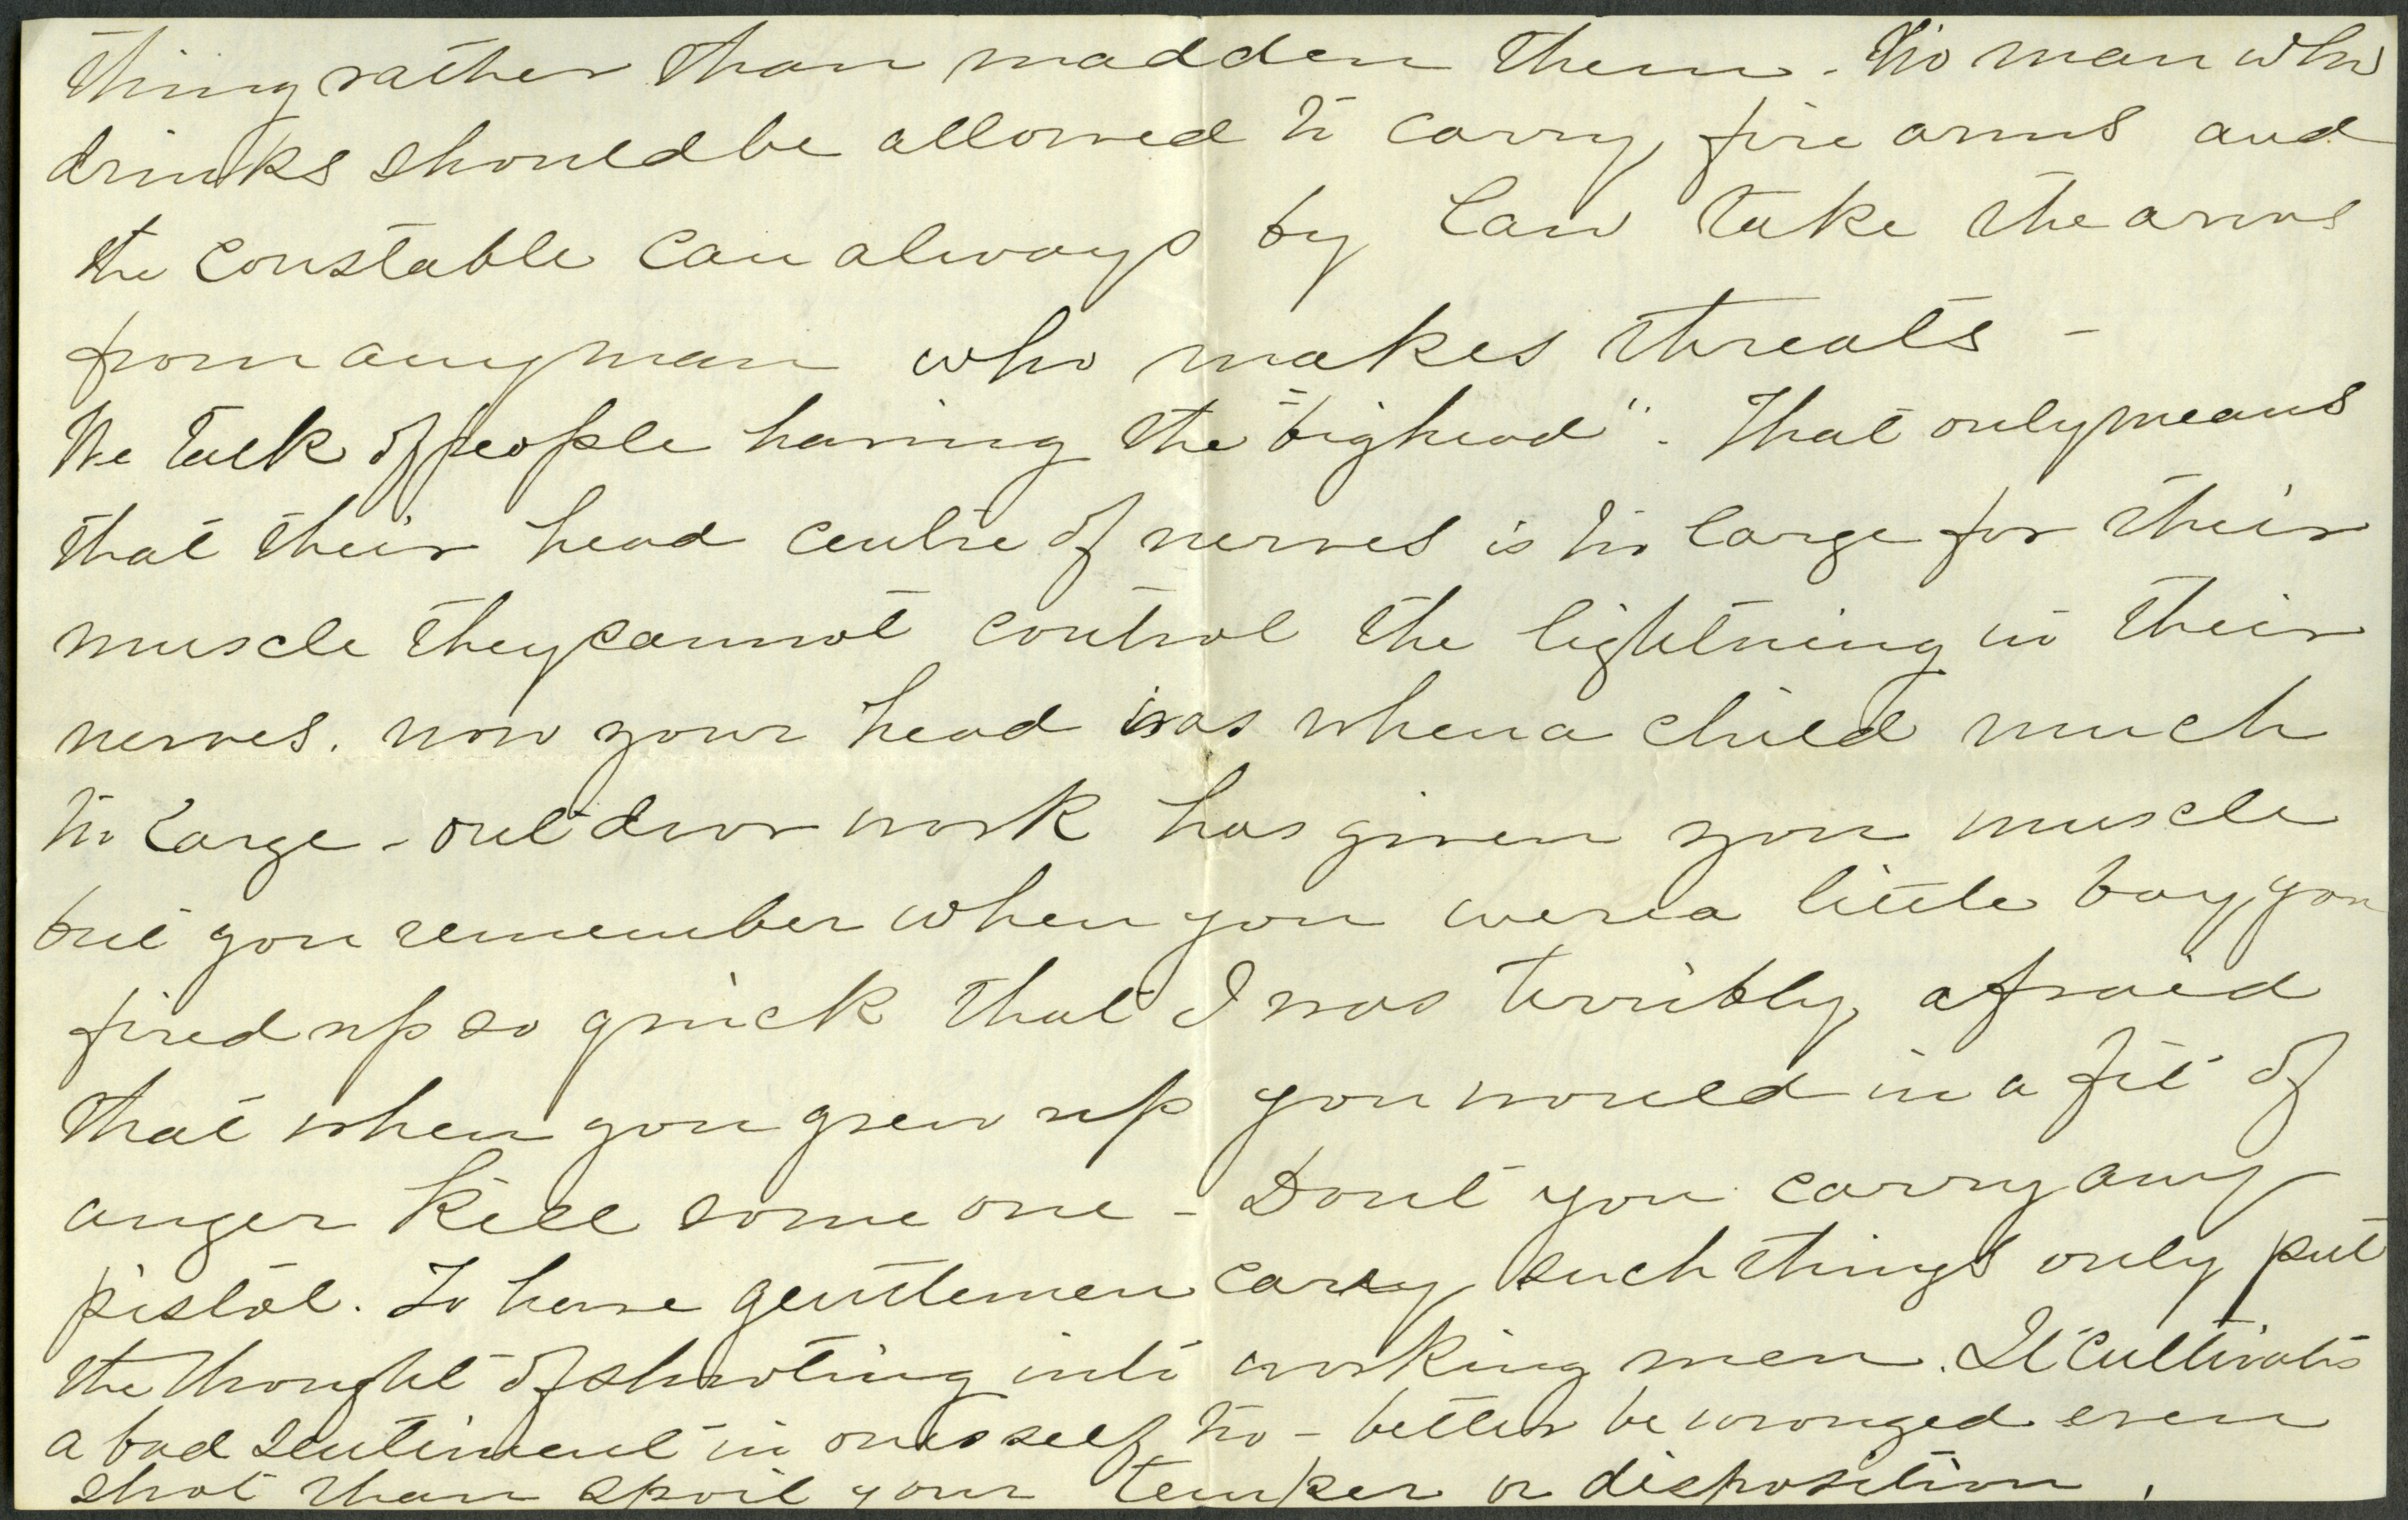 thing rather than madden them. No man who
drinks should be allowed to carry fire arms and
the constable can always by law take the arms
from any man who makes threats -
We talk of people having the "big head". That only means
that their head centre of nerves is too large for their
muscle they cannot control the lightning in their
nerves. now your head was when a child much
too large - out door work has given you muscle
but you remember when you were a little boy you
fired up so quick that I was terribly afraid
that when you grew up you would in a fit of
anger kill some one - Dont you carry any
pistol. To have gentlemen carry such things only put
the thought of shooting into working men. It cultivates
a bad sentiment in ones self too - better be wronged even
shot than spoil your temper or disposition.